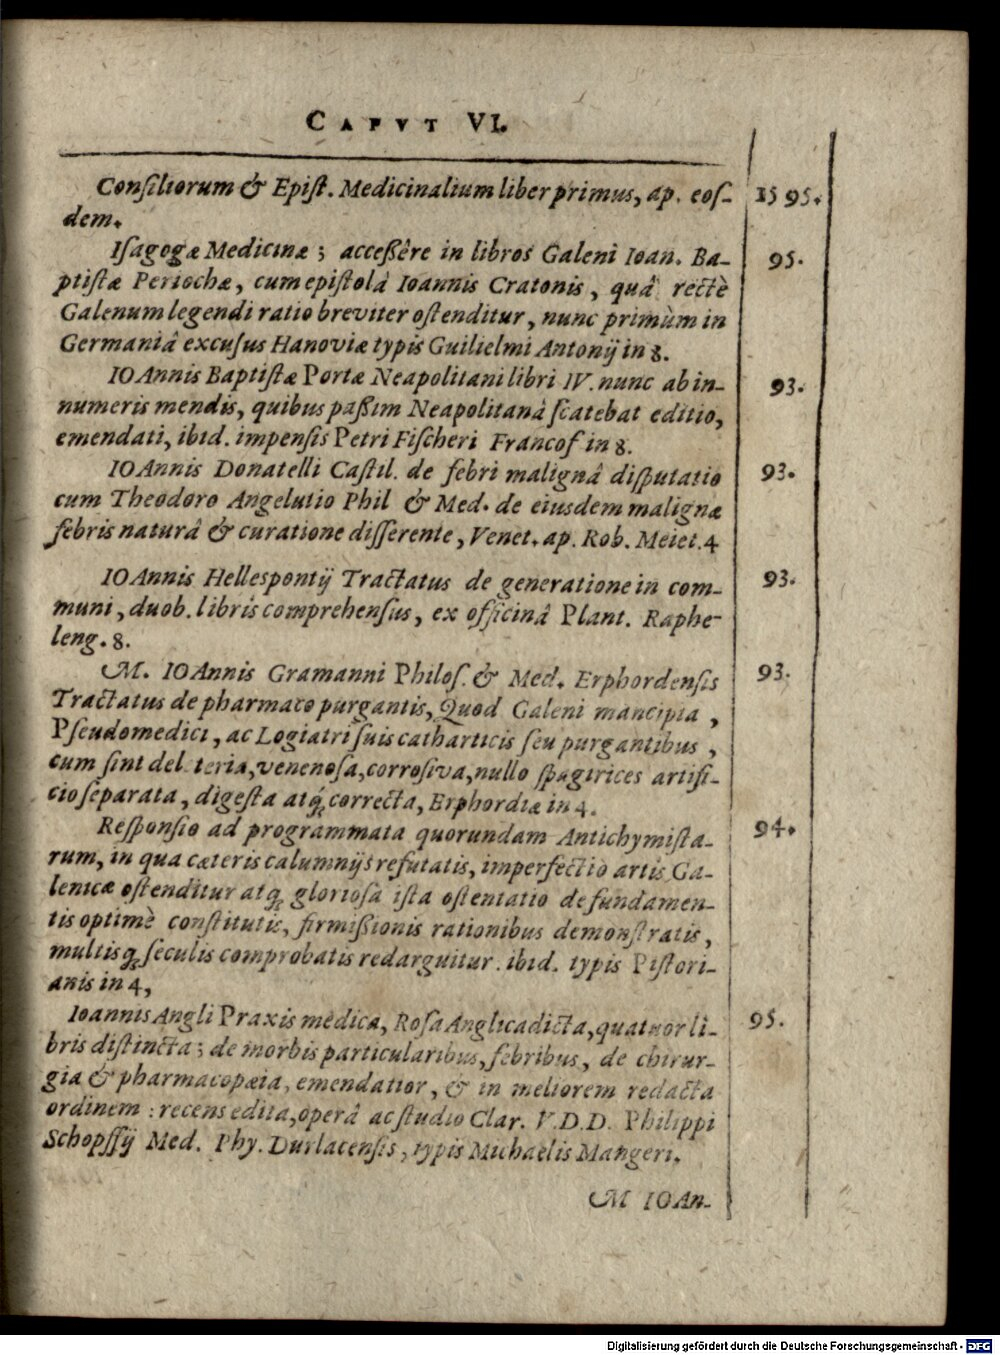 CAPVT VI.
Consiliorum & Epist. Medicinalium liber primus, ap. eos- 1595.
dem.
Isagogæ Medicinæ; accessêre in libros Galeni Ioan. Ba- 95.
ptistæ Periochæ, cum epistolâ Ioannis Cratonis, quâ rectè
Galenum legendi ratio breviter ostenditur, nunc primùm in
Germaniâ excusus Hanoviæ typis Guilielmi Antonij in 8.
IOAnnis Baptistæ Portæ Neapolitani libri IV. nunc ab in- 93.
numeris mendis, quibus passim Neapolitanâ scatebat editio,
emendati, ibid. impensis Petri Fischeri Francof in 8.
IOAnnis Donatelli Castil. de febri malignâ disputatio 93.
cum Theodoro Angelutio Phil & Med. de eiusdem malignæ
febris naturâ & curatione differente, Venet. ap. Rob. Meiet. 4
IOAnnis Hellespontij Tractatus de generatione in com- 93.
muni, duob. libris comprehensus, ex officinâ Plant. Raphe-
leng. 8.
M. IOAnnis Gramanni Philos. & Med. Erphordensis 93.
Tractatus de pharmaco purgantis, Quod Galeni mancipia,
Pseudomedici, ac Logiatri suis catharticis seu purgantibus,
cum sint del teria, venenosa, corrosiva, nullo spagirices artifi-
cio separata, digesta atq; correcta, Erphordiæ in 4.
Responsio ad programmata quorundam Antichymista- 94.
rum, in qua cæteris calumnijs refutatis, imperfectio artis Ga-
lenicæ ostenditur atq; gloriosa ista ostentatio de fundamen-
tis optimè constitutis, firmissionis rationibus demonstratis,
multisq; seculis comprobatis redarguitur. ibid. typis Pistori-
anis in 4,
Ioannis Angli Praxis medica, Rosa Anglica dicta, quatuor li- 95.
bris distincta; de morbis particularibus, febribus, de chirur-
gia & pharmacopæia, emendatior, & in meliorem redacta
ordinem: recens edita, operâ ac studio Clar. V.D.D. Philippi
Schopffij Med. Phy. Durlacensis, typis Michaelis Mangeri.
M IOAn-
Digitalisierung gefördert durch die Deutsche Forschungsgemeinschaft - DFG